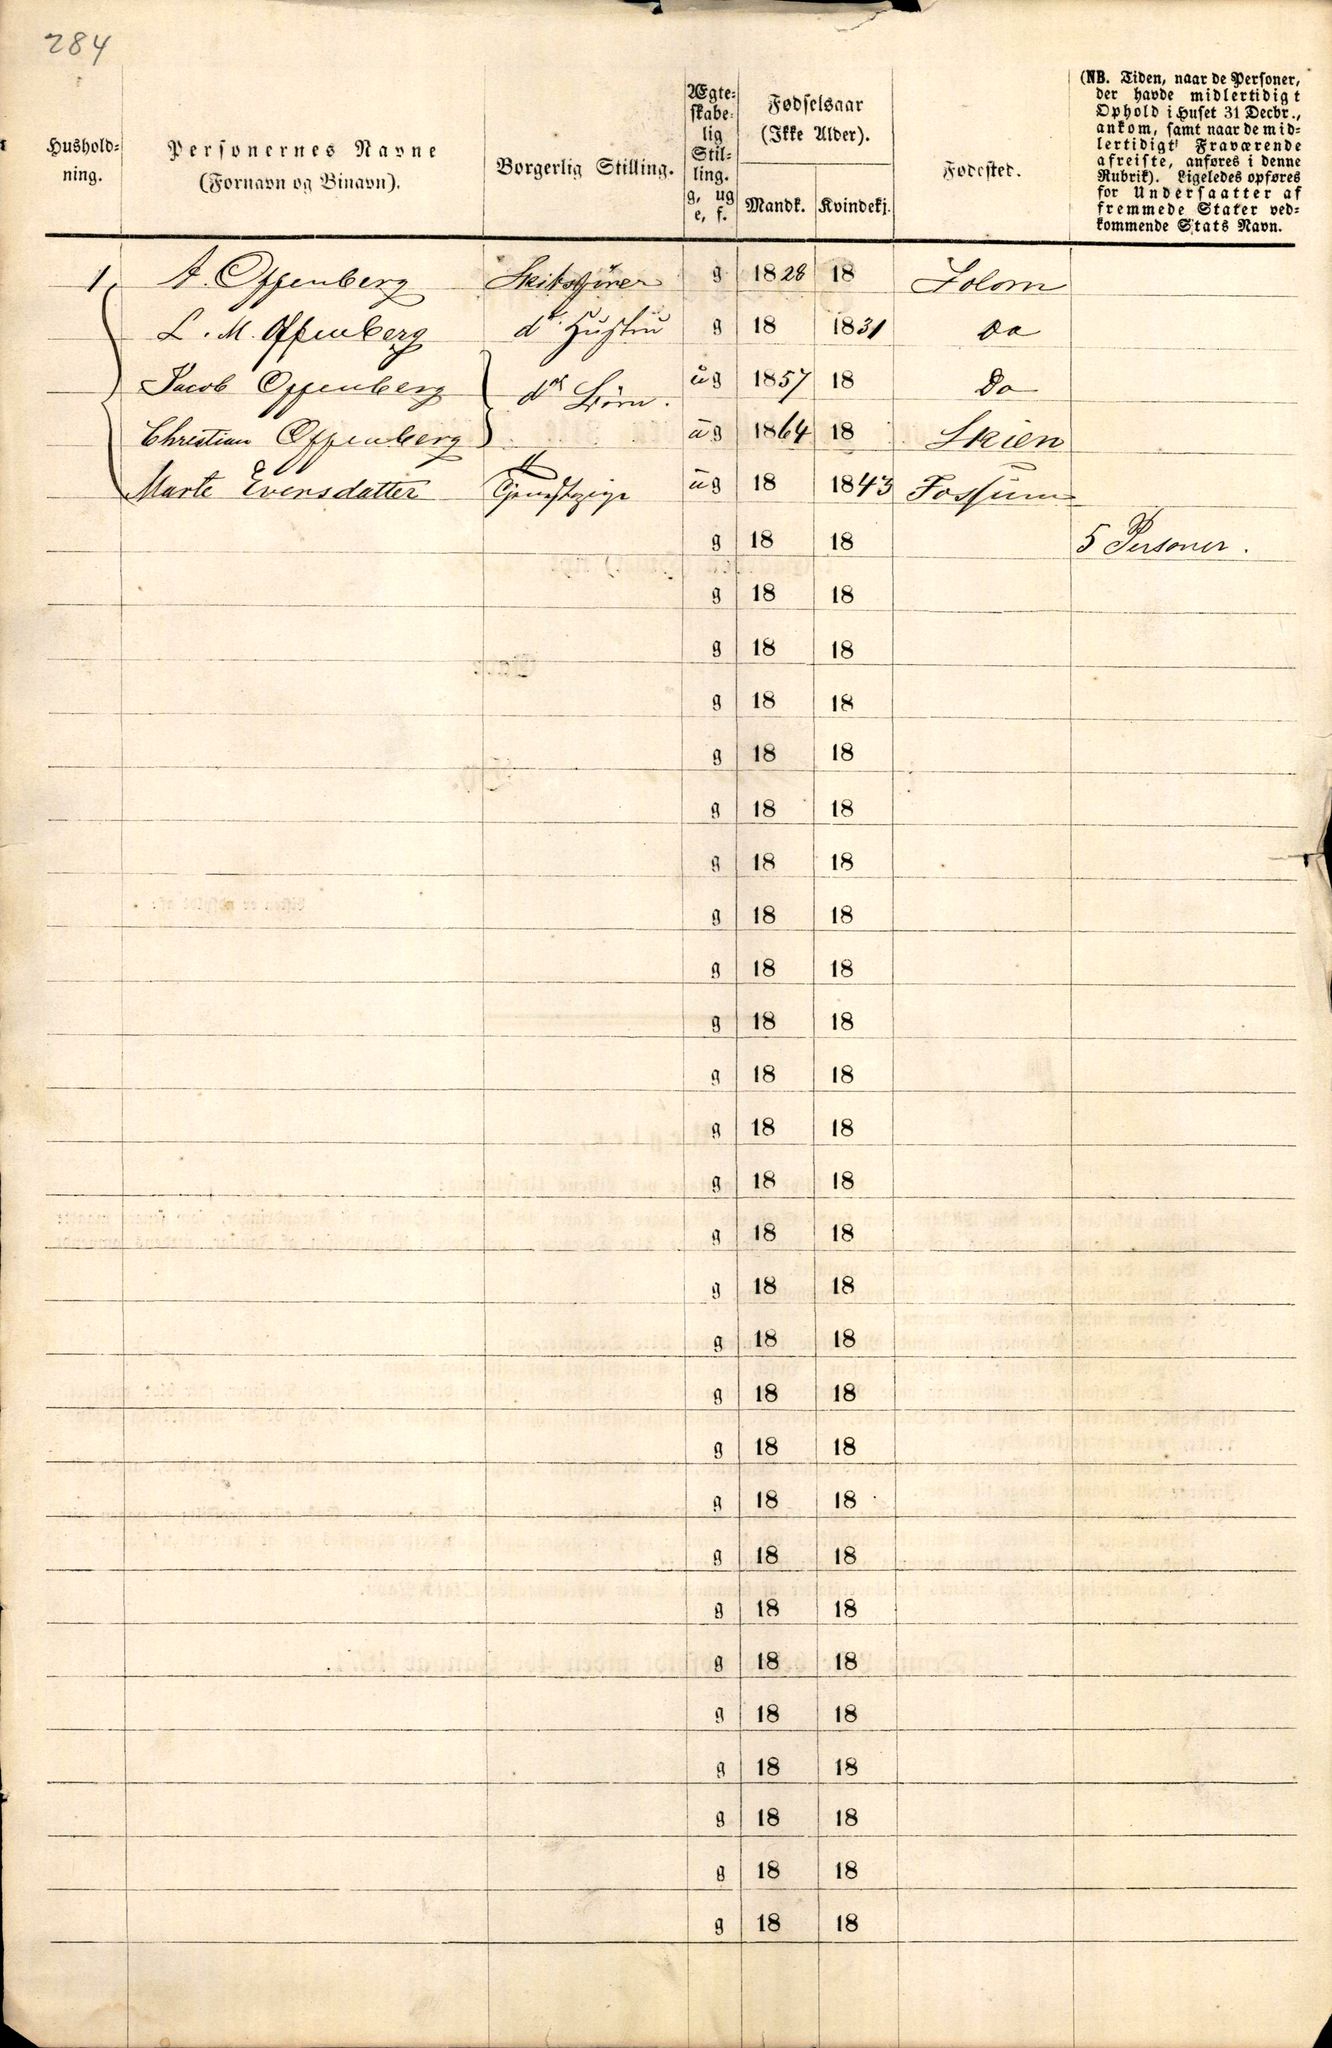 284
Hushold-
ning.
Personernes Navne
(Fornavn og Binavn).
Borgerlig Stilling.
Ægte-
skabe-
lig
Stil-
ling.
g, ug
e, f.
Fødselsaar
(Ikke Alder).
Mandk.
Kvindekj.
Fødested.
(NB. Tiden, naar de Personer,
der havde midlertidigt
Ophold i Huset 31 Decbr.,
ankom, samt naar de mid-
lertidigt Fraværende
afreiste, anføres i denne
Rubrik). Ligeledes opføres
for Undersaatter af
fremmede Stater ved-
kommende Stats Navn.
1 A. Offenberg g 1828 18 Solom
L. M. Offenberg ds Hustru g 18 1831 Do
Jacob Offenberg ds Børn. ug 1857 18 Do
Christian Offenberg ug 1864 18 Skien
Marte Eversdatter Tjenestepige ug 18 1843 Fossum
g 18 18 5 Personer.
g 18 18
g 18 18
g 18 18
g 18 18
g 18 18
g 18 18
g 18 18
g 18 18
g 18 18
g 18 18
g 18 18
g 18 18
g 18 18
g 18 18
g 18 18
g 18 18
g 18 18
g 18 18
g 18 18
g 18 18
g 18 18
g 18 18
g 18 18
g 18 18
g 18 18
g 18 18